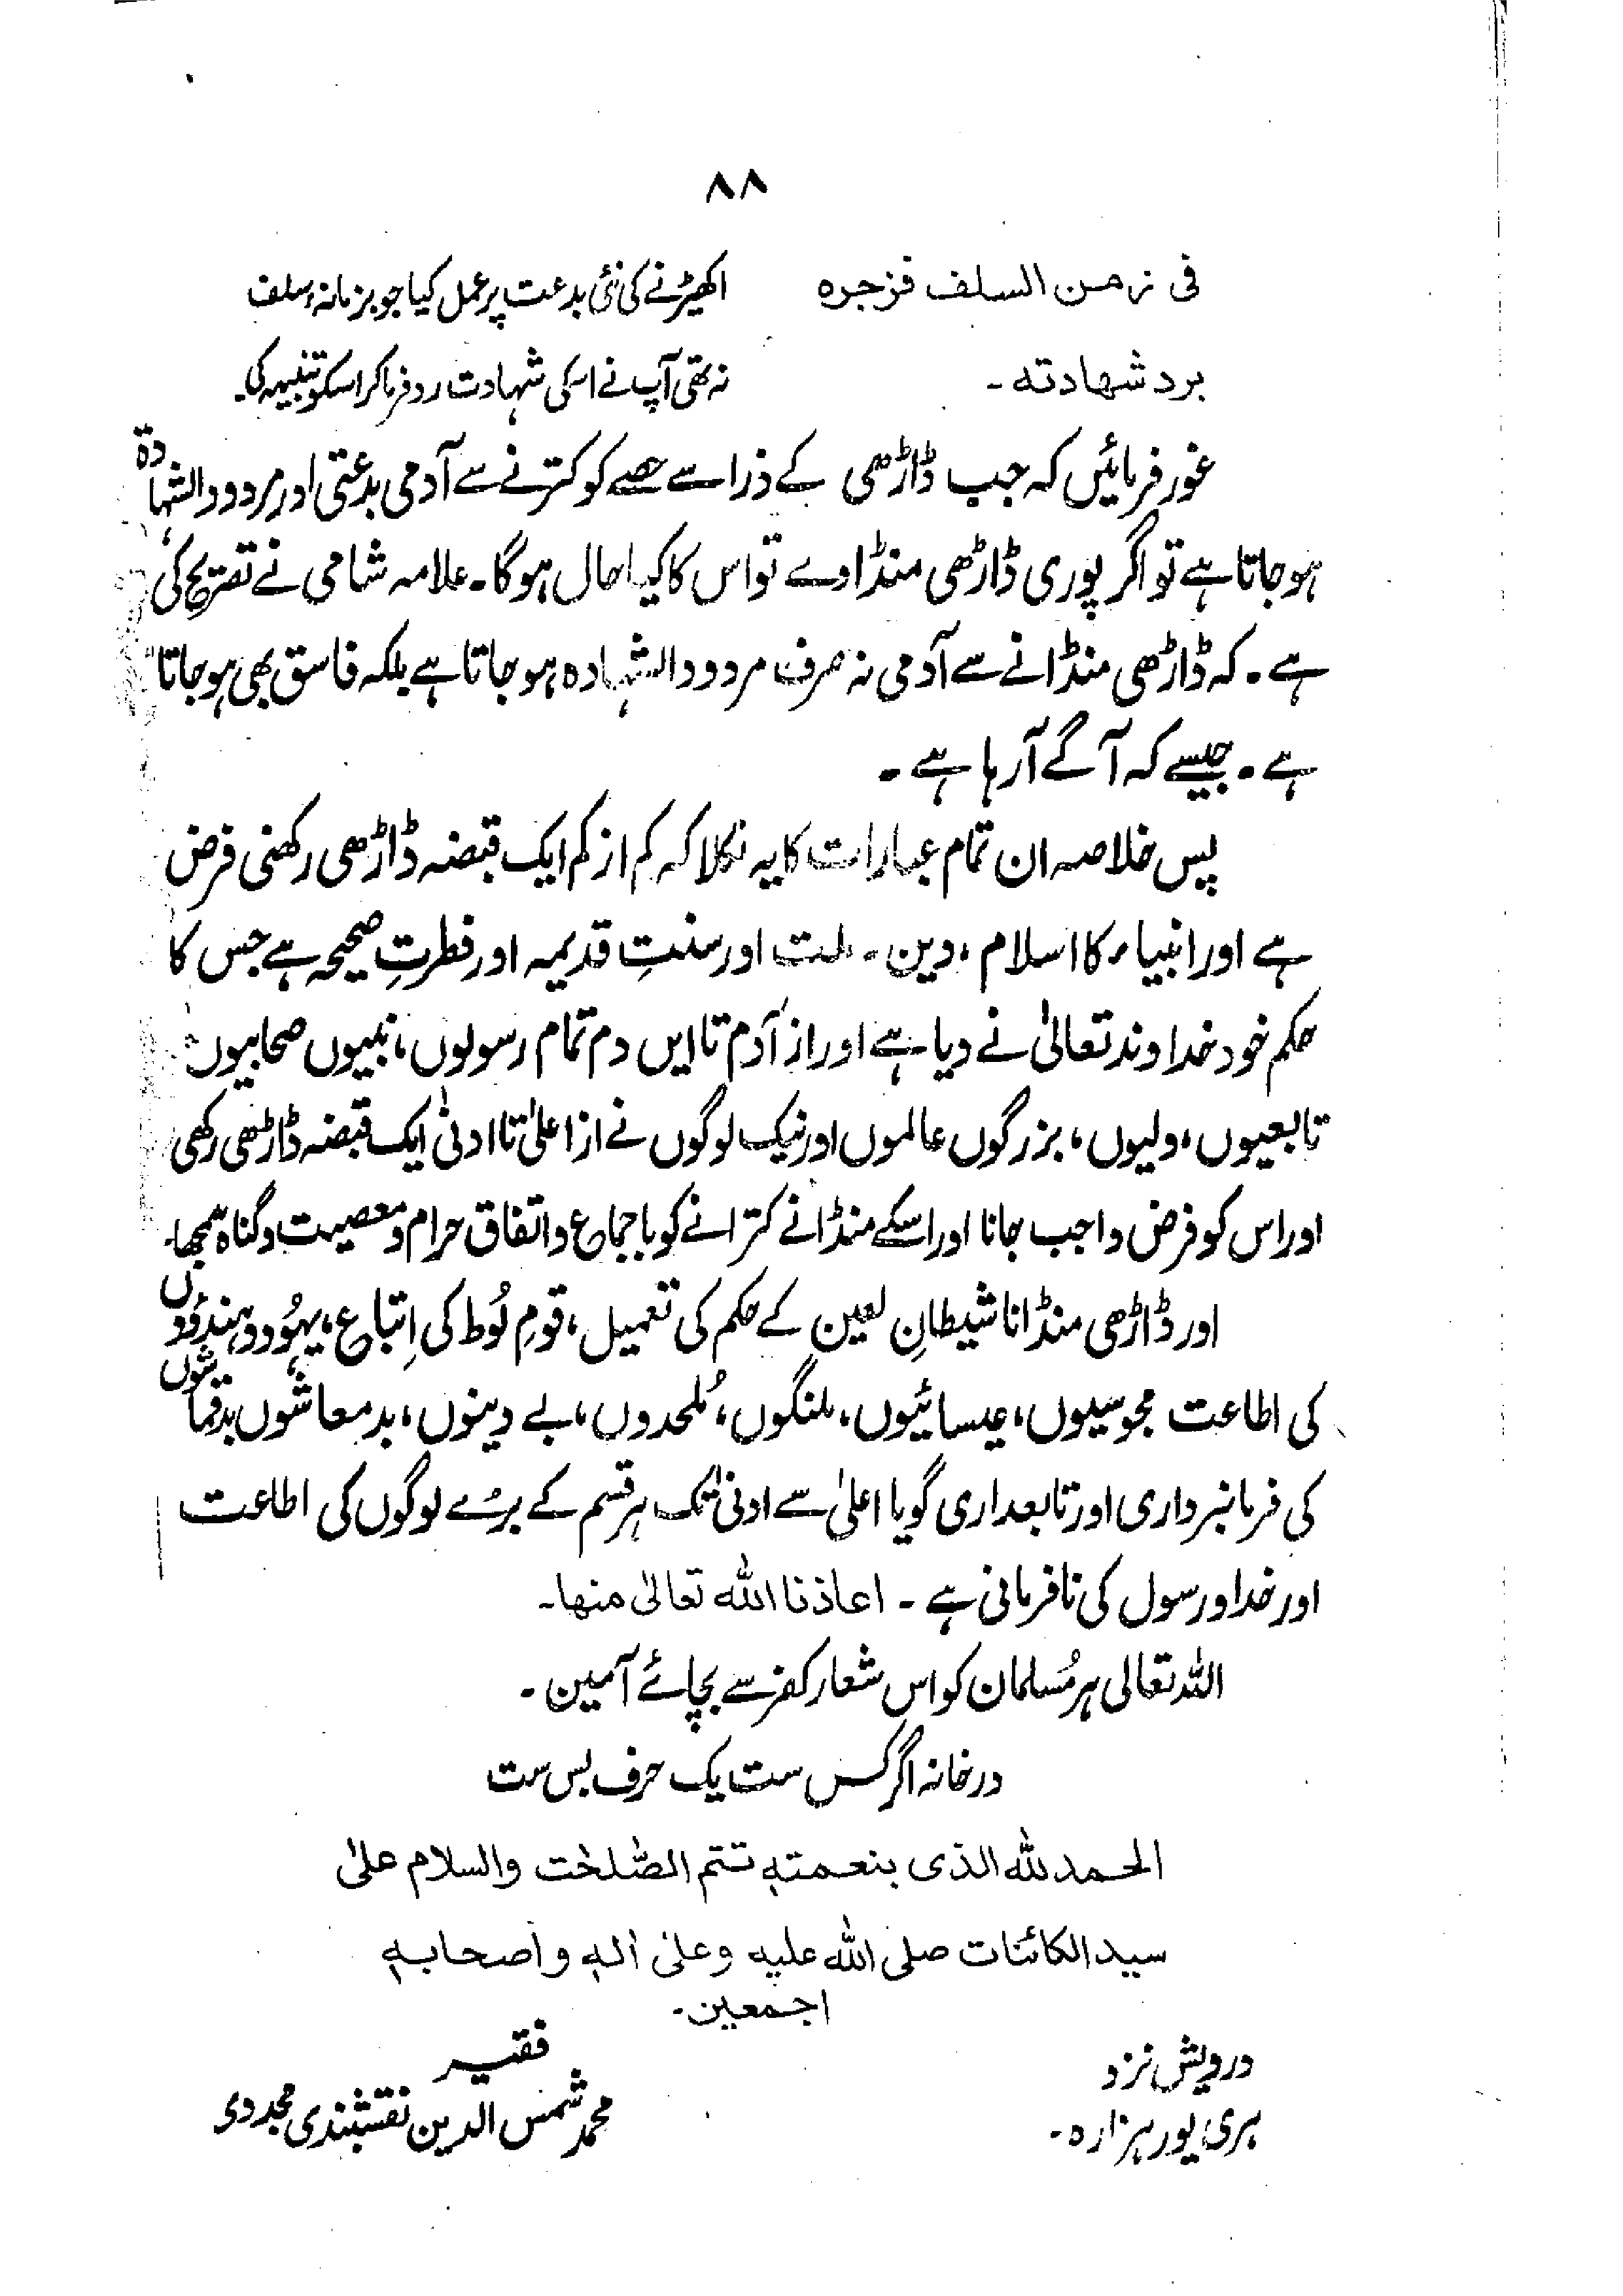 ۸۸
فی زمن السلف فزجره اکھیڑنے کی نئی بدعت پر عمل کیا جو بزمانہ سلف
برد شهادته ۔ نہ تھی آپ نے اسکی شہادت رد فرما کر اسکو تنبیہہ کی۔
غور فرمائیں کہ جب ڈاڑھی کے ذرا سے حصے کو کترنے سے آدمی بدعتی اور مردود الشہادۃ
ہو جاتا ہے تو اگر پوری ڈاڑھی منڈاوے تو اس کا کیا حال ہوگا۔ علامہ شامی نے تصریح کی
ہے ۔ کہ ڈاڑھی منڈانے سے آدمی نہ صرف مردود الشہادہ ہو جاتا ہے بلکہ فاسق بھی ہو جاتا
ہے ۔ جیسے کہ آگے آرہا ہے ۔
پس خلاصہ ان تمام عبارات کا یہ نکلا کہ کم از کم ایک قبضہ ڈاڑھی رکھنی فرض
ہے اور انبیاء کا اسلام ، دین ۔ ملت اور سنتِ قدیمہ اور فطرتِ صحیحہ ہے جس کا
حکم خود خداوند تعالیٰ نے دیا ہے اور از آدم تا ایں دم تمام رسولوں، نبیوں صحابیوں
تابعیوں، ولیوں، بزرگوں عالموں اور نیک لوگوں نے از اعلیٰ تا ادنیٰ ایک قبضہ ڈاڑھی رکھی
اور اس کو فرض واجب جانا اور اسکے منڈانے کترانے کو باجماع واتفاق حرام ومعصیت وگناہ سمجھا۔
اور ڈاڑھی منڈانا شیطانِ لعین کے حکم کی تعمیل ، قومِ لُوط کی اِتباع ، یہُود وہندوؤں
کی اطاعت مجوسیوں، عیسائیوں، ملنگوں، مُلحدوں، بے دینوں، بدمعاشوں بدقماشوں
کی فرمانبرداری اور تابعداری گویا اعلیٰ سے ادنیٰ تک ہر قسم کے بُرے لوگوں کی اطاعت
اور خدا ورسول کی نافرمانی ہے ۔ اعاذنا اللہ تعالیٰ منها۔
اللہ تعالی ہر مُسلمان کو اس شعار کفر سے بچائے آمین ۔
در خانہ اگر کس ست یک حرف بس ست
الحمد للہ الذی بنعمتہٖ تتم الصّٰلحٰت والسلام علیٰ
سید الکائنات صلی اللہ علیہ وعلیٰ اٰلہٖ واصحابہٖ
اجمعین۔
درویش نزد فقیر
ہری پور ہزارہ ۔ محمد شمس الدین نقشبندی مجددی